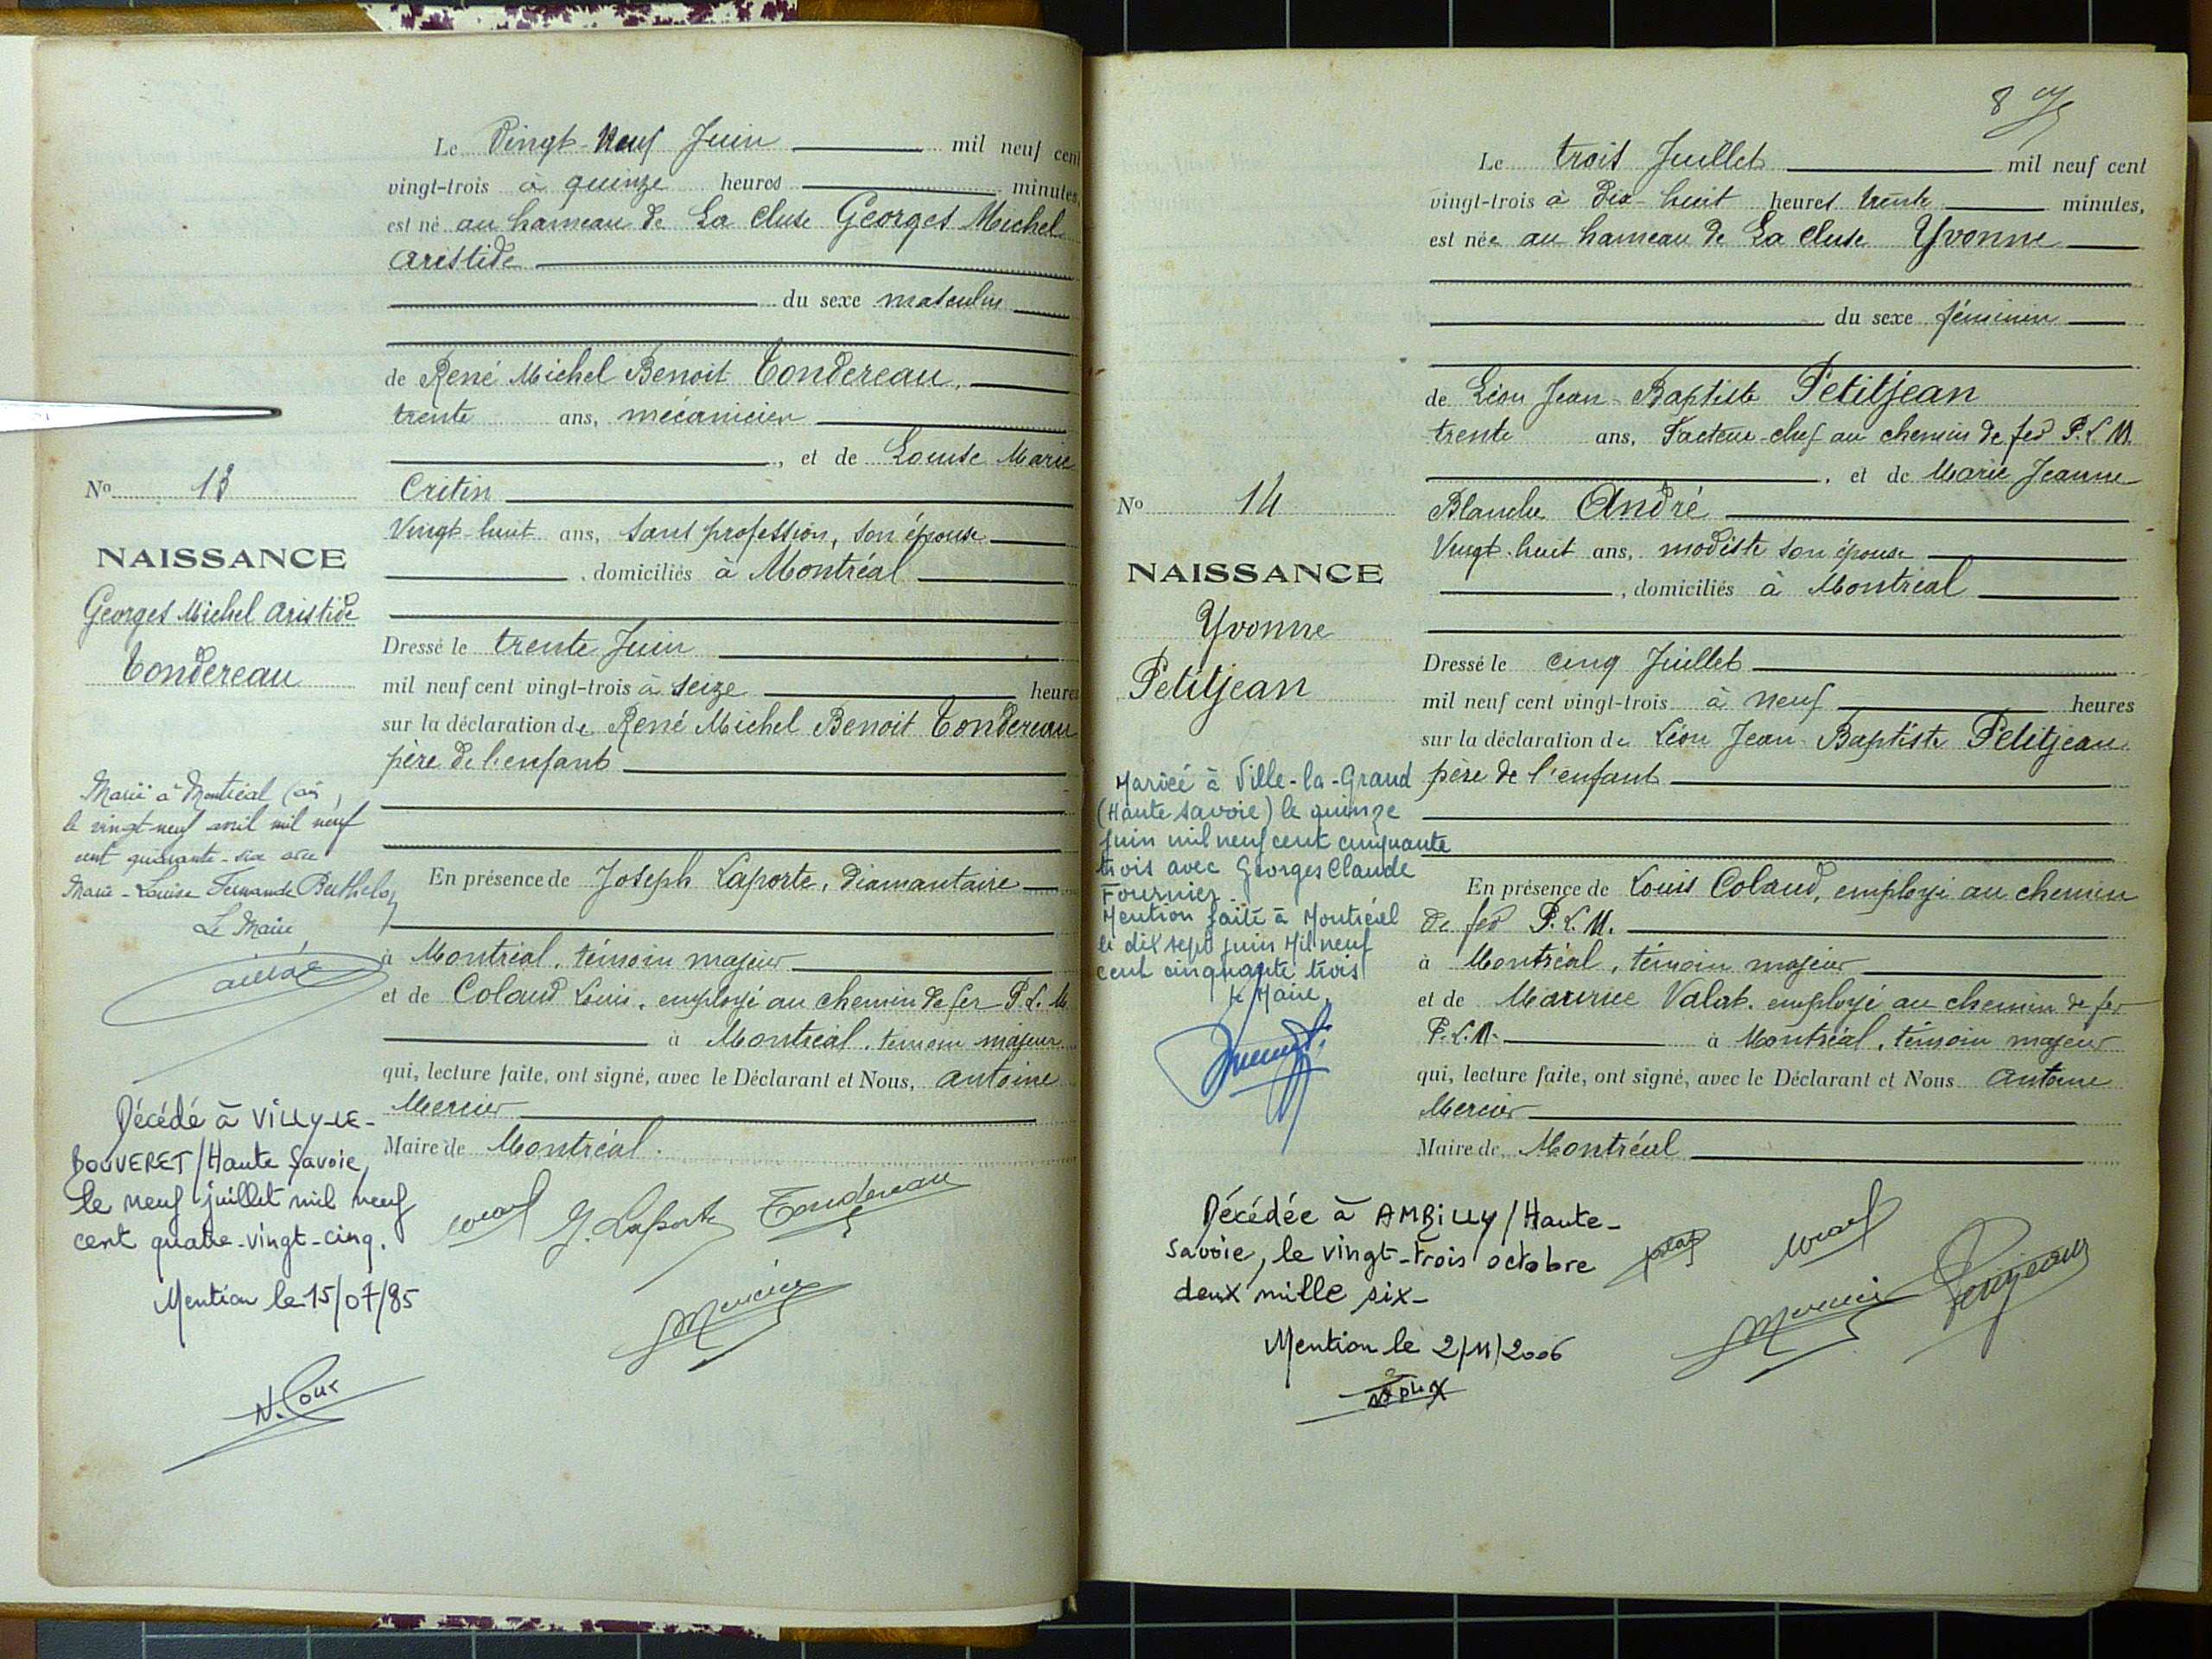 Le Vingt-Neuf Juin mil neuf cent
vingt-trois à quinze heures minutes,
est né au hameau de La Cluse Georges Michel
Aristide
du sexe masculin
de René Michel Benoit Tondereau,
trente ans, mécanicien
, et de Louise Marie
Critin
Vingt-huit ans, sans profession, son épouse
, domiciliés à Montréal
Dressé le trente Juin
mil neuf cent vingt-trois à seize heures
sur la déclaration de René Michel Benoit Tondereau
père de l'enfant
En présence de Joseph Laporte, diamantaire
à Montréal, témoin majeur
et de Coland Louis, employé au chemin de fer P.L.M.
à Montréal, témoin majeur
qui, lecture faite, ont signé, avec le Déclarant et Nous, Antoine
Mercier
Maire de Montréal.
J. Laporte Tondereau
Mercier
No 13
NAISSANCE
Georges Michel Aristide
Tondereau
Marié à Montréal (Ain,
le vingt-neuf avril mil neuf
cent quarante-six avec
Marie-Louise Fernande Berthelon
Le Maire,
Décédé à VILLY-LE-
BOUVERET/Haute Savoie,
le neuf juillet mil neuf
cent quatre-vingt-cinq.
Mention le 15/07/85
N. Cour
8
Le trois Juillet mil neuf cent
vingt-trois à dix-huit heures trente minutes,
est née au hameau de La Cluse Yvonne
du sexe féminin
de Léon Jean-Baptiste Petitjean
trente ans, Facteur-chef au chemin de fer P.L.M.
, et de Marie Jeanne
Blanche André
Vingt-huit ans, modiste son épouse
, domiciliés à Montréal
Dressé le cinq Juillet
mil neuf cent vingt-trois à neuf heures
sur la déclaration de Léon Jean-Baptiste Petitjean
père de l'enfant
En présence de Louis Coland, employé au chemin
de fer P.L.M.
à Montréal, témoin majeur
et de Maurice Valat, employé au chemin de fer
P.L.M. à Montréal, témoin majeur
qui, lecture faite, ont signé, avec le Déclarant et Nous Antoine
Mercier
Maire de Montréal
Mercier Petitjean
No 14
NAISSANCE
Yvonne
Petitjean
Mariée à Ville-la-Grand
(Haute Savoie) le quinze
juin mil neuf cent cinquante
trois avec Georges Claude
Fournier
Mention faite à Montréal
le dix sept juin Mil neuf
cent cinquante trois
Le Maire,
Décédée à AMBILLY/Haute-
Savoie, le vingt-trois octobre
deux mille six-
Mention le 2/11/2006